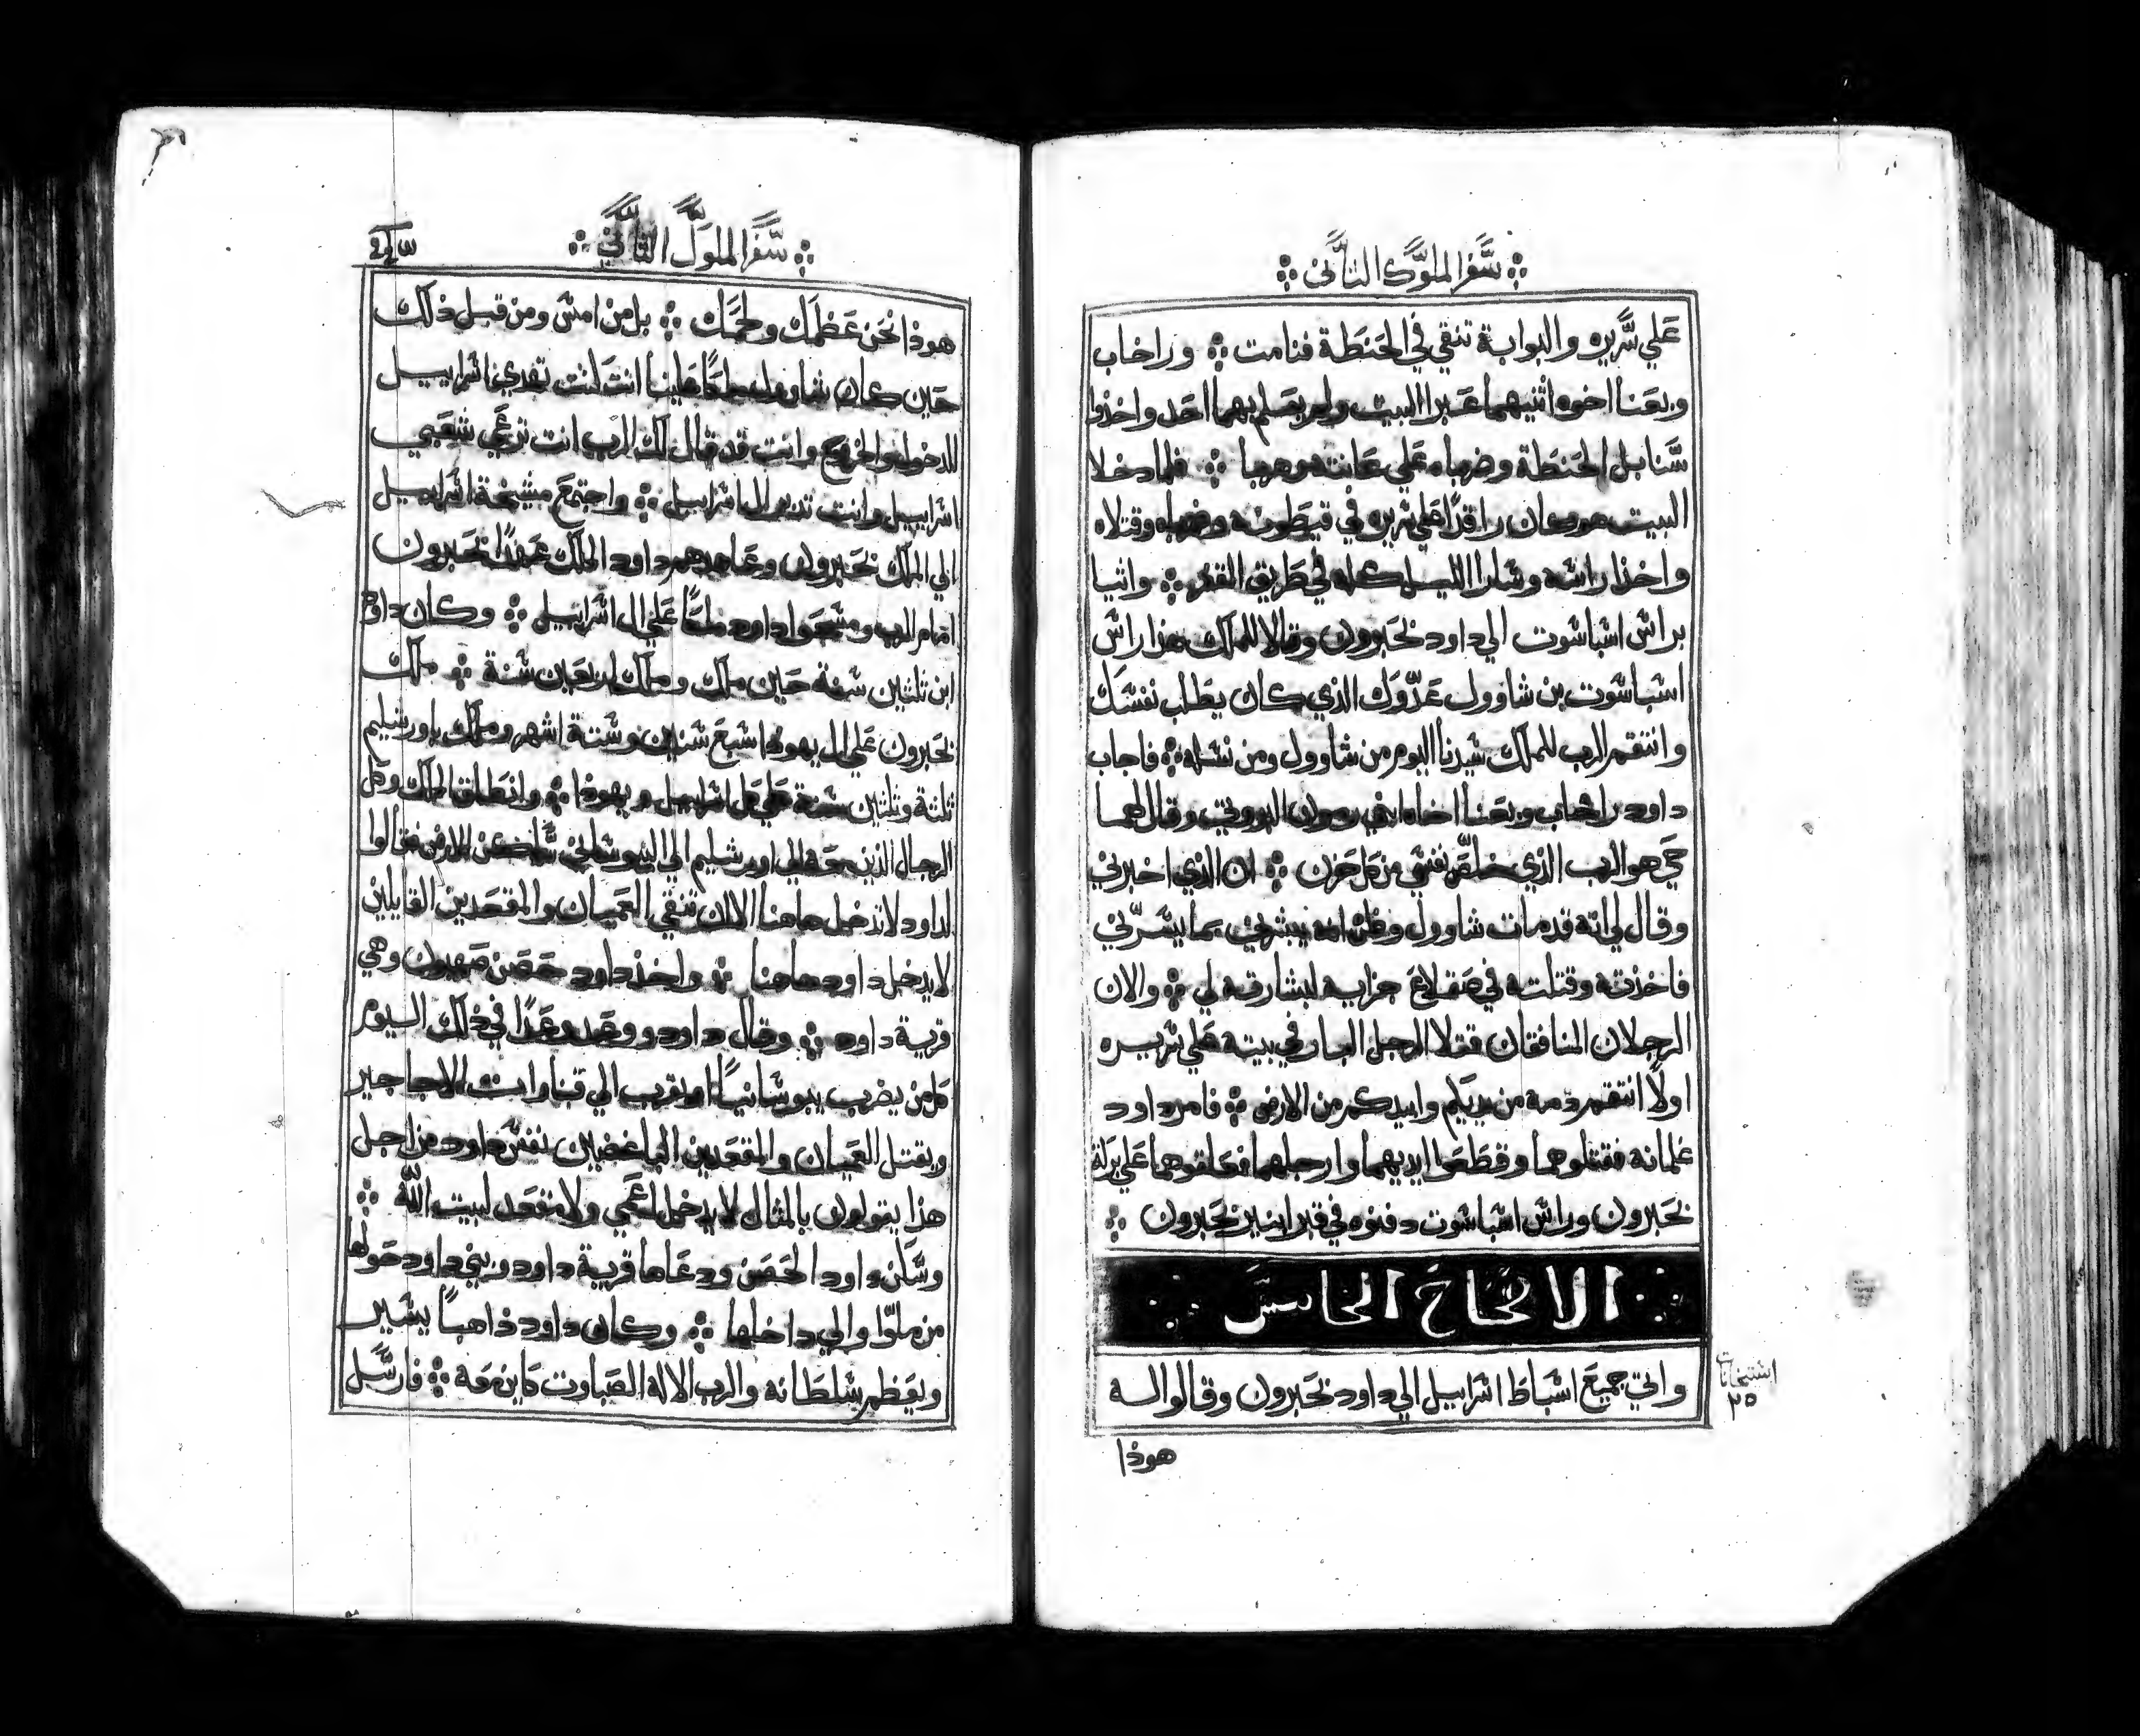 سفر الملوك الثاني
علي سريره والبوابة تنقي في الحنطة فنامت وراخاب
وبعنا اخوه اثنيهما عبرا البيت ولم يعلم بهما احد واخذوا
سنابل الحنطة وضرباه علي عانته وهربا فلما دخلا
البيت هو كان راقدا علي سريره في قيطونه وضرباه وقتلاه
واخذا راسه وسارا الليل كله في طريق القفر واتيا
براس اسباشوت الي داود بحبرون وقالا للملك هذا راس
اسباشوت بن شاوول عدوك الذي كان يطلب نفسك
وانتقم الرب للملك سيدنا اليوم من شاوول ومن نسله فاجاب
داود راخاب وبعنا اخاه ابني رمون البروتي وقال لهما
حي هو الرب الذي خلص نفسي من كل حزن ان الذي اخبرني
وقال لي انه قد مات شاوول وظن انه يبشرني بما يسرني
فاخذته وقتلته في صقلاغ جزايه لبشارته لي والان
الرجلان المنافقان قتلا الرجل البار في بيته علي سريره
اولا انتقم دمه من يديكم وابيدكم من الارض فامر داود
غلمانه فقتلوهما وقطعوا ايديهما وارجلهما فعلقوهما علي بركة
بحبرون وراس اشباشوت دفنوه في قبر ابنير بحبرون
الاصحاح الخامس
واتي جميع اسباط اسراييل الي داود بحبرون وقالوا له
٢٥
هوذا
سفر الملوك الثاني
هوذا نحن عظمك ولحمك بل من امس ومن قبل ذلك
حين كان شاوول ملكا علينا انت كنت تهدي اسراييل
للدخول والخروج وانت قد قال لك الرب انت ترعي شعبي
اسراييل وانت تدبر ال اسراييل واجتمع مشيخة اسراييل
الي الملك بحبرون وعاهدهم داود الملك عهدا بحبرون
امام الرب ومسحوا داود ملكا علي ال اسراييل وكان داود
ابن ثلثين سنة حين ملك وملك اربعين سنة ملك
بحبرون علي ال يهودا سبع سنين وستة اشهر وملك باورشليم
ثلثة وثلثين سنة علي كل اسراييل ويهوذا وانطلق الملك وكل
الرجال الذين معه الي اورشليم الي اليبوساني ساكن الارض فقالوا
لداود لا تدخل هاهنا الا ان تنقي العميان والمقعدين القايلين
لا يدخل داود هاهنا واخذ داود حصن صهيون وهي
قرية داود وقال داود ووعد وعدا في ذلك اليوم
كل من يضرب يبوسانيا او يقرب الي قناوات الاجاجير
ويقتل العميان والمقعدين الباغضين نفس داود من اجل
هذا يقولون بالمثال لا يدخل اعمي ولا مقعد لبيت الله
وسكن داود الحصن ودعاها قرية داود وبني داود حولها
من ملوا والي داخلها وكان داود ذاهبا يسير
ويعظم سلطانه والرب الاله الصباوت كاين معه فارسل